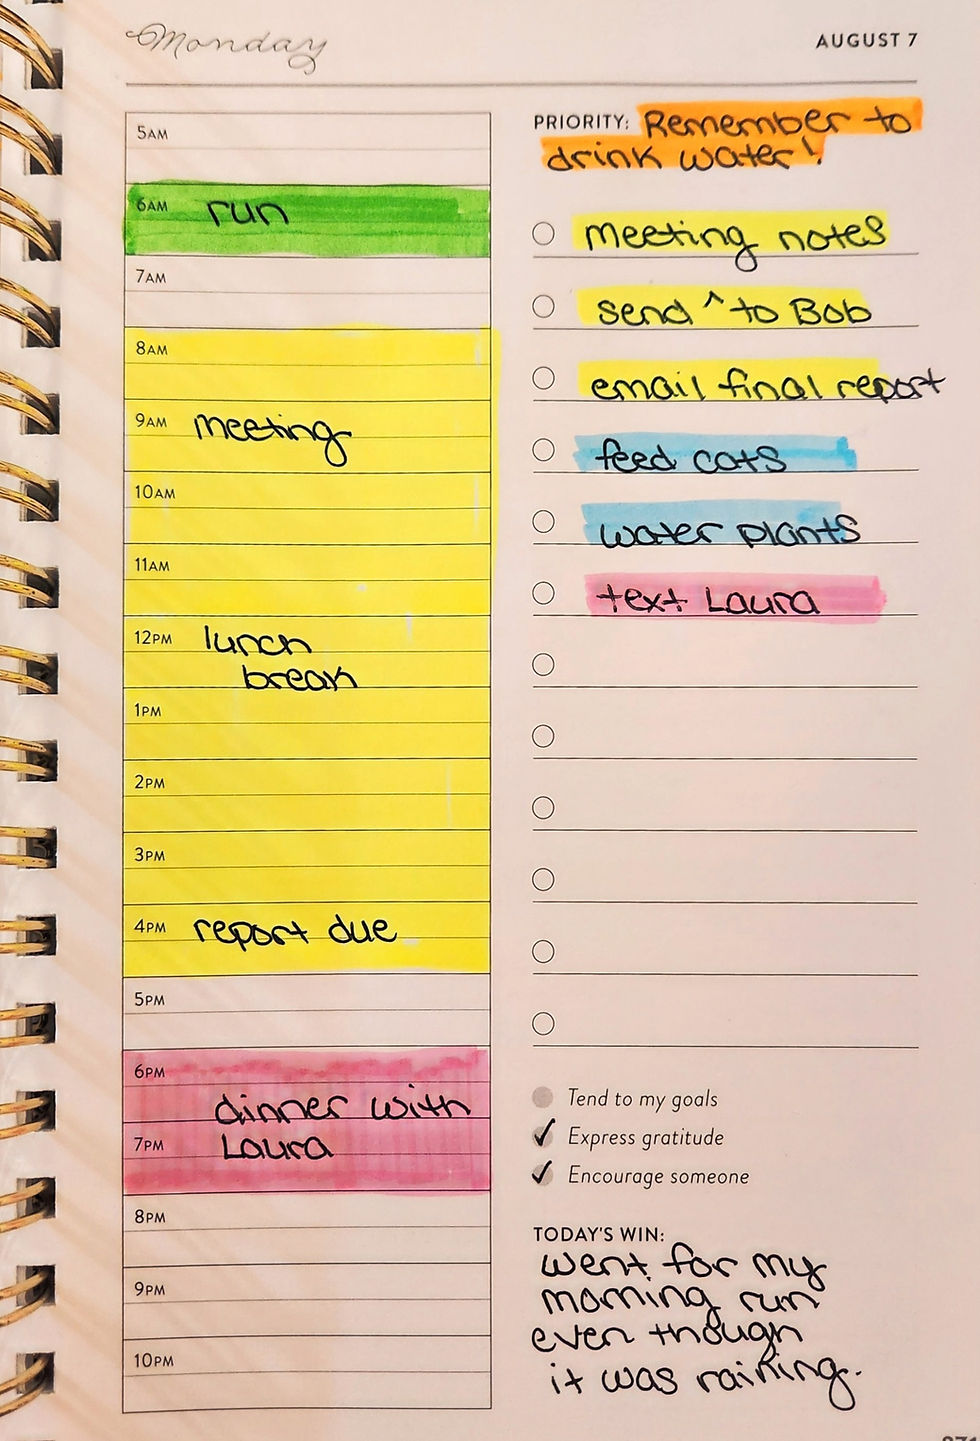 Monday
AUGUST 7
5AM
6AM run
7AM
8AM
9AM meeting
10AM
11AM
12PM lunch
break
1PM
2PM
3PM
4PM report due
5PM
6PM
dinner with
7PM Laura
8PM
9PM
10PM
PRIORITY: Remember to
drink water!
meeting notes
send ^ to Bob
email final report
feed cats
water plants
text Laura
Tend to my goals
Express gratitude
Encourage someone
TODAY'S WIN:
went for my
morning run
even though
it was raining.